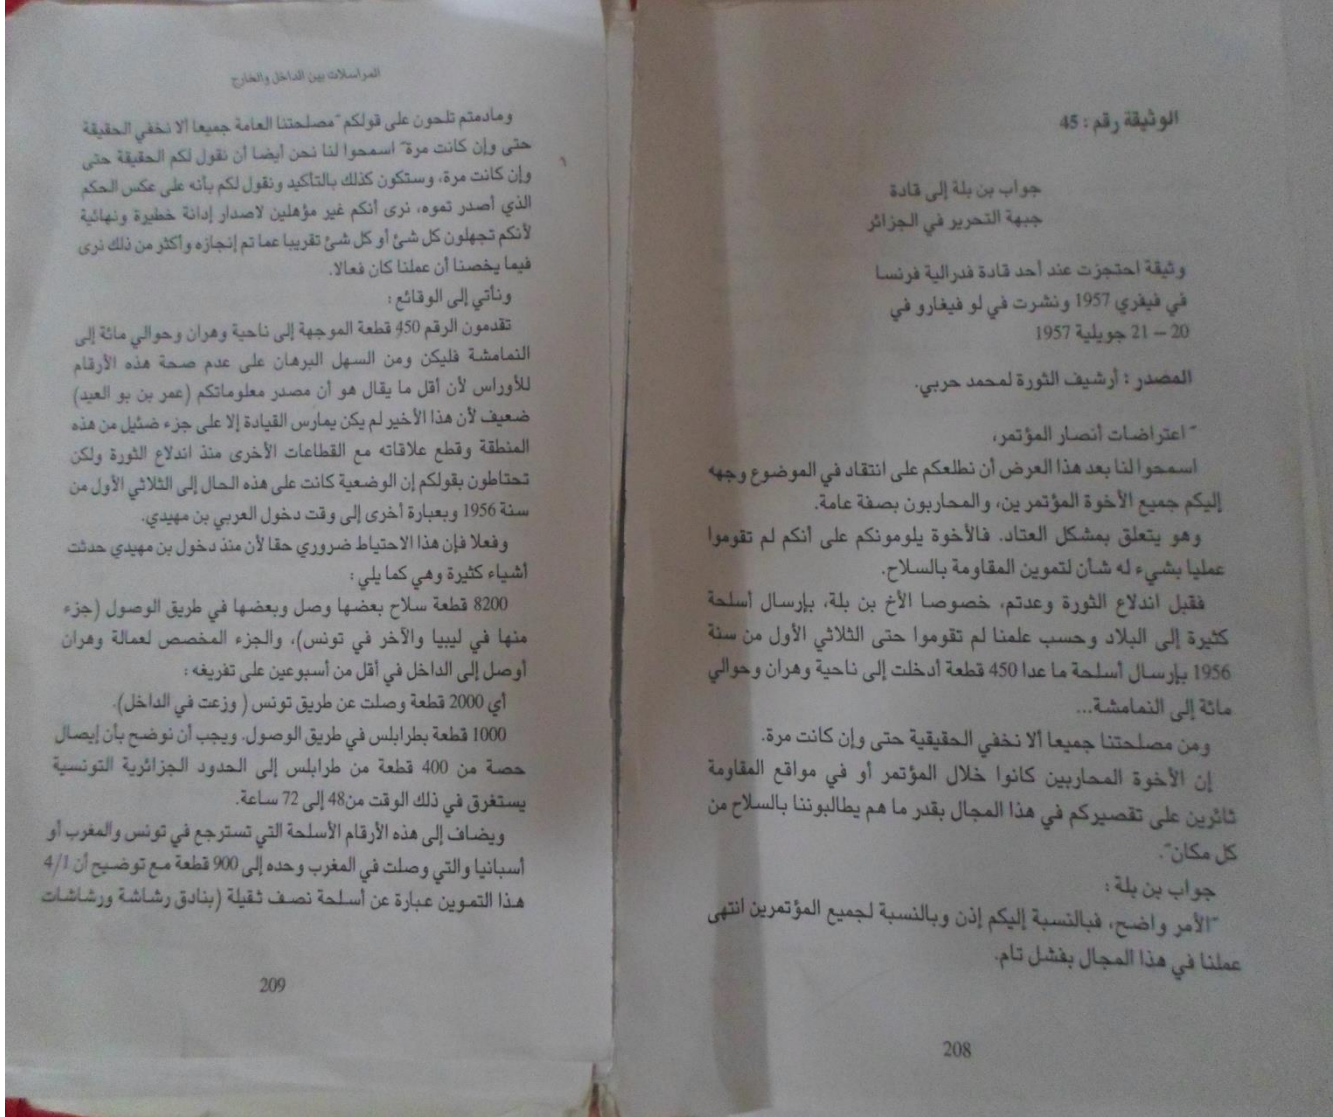 الوثيقة رقم : 45
جواب بن بلة إلى قادة
جبهة التحرير في الجزائر
وثيقة احتجزت عند أحد قادة فدرالية فرنسا
في فيفري 1957 ونشرت في لو فيغارو في
20 – 21 جويلية 1957
المصدر : أرشيف الثورة لمحمد حربي.
" اعتراضات أنصار المؤتمر،
اسمحوا لنا بعد هذا العرض أن نطلعكم على انتقاد في الموضوع وجهه
إليكم جميع الأخوة المؤتمر ين، والمحاربون بصفة عامة.
وهو يتعلق بمشكل العتاد. فالأخوة يلومونكم على أنكم لم تقوموا
عمليا بشيء له شأن لتموين المقاومة بالسلاح.
فقبل اندلاع الثورة وعدتم، خصوصا الأخ بن بلة، بإرسال أسلحة
كثيرة إلى البلاد وحسب علمنا لم تقوموا حتى الثلاثي الأول من سنة
1956 بإرسال أسلحة ما عدا 450 قطعة أدخلت إلى ناحية وهران وحوالي
مائة إلى النمامشة...
ومن مصلحتنا جميعا ألا نخفي الحقيقية حتى وإن كانت مرة.
إن الأخوة المحاربين كانوا خلال المؤتمر أو في مواقع المقاومة
ثائرين على تقصيركم في هذا المجال بقدر ما هم يطالبوننا بالسلاح من
كل مكان".
جواب بن بلة :
"الأمر واضح، فبالنسبة إليكم إذن وبالنسبة لجميع المؤتمرين انتهى
عملنا في هذا المجال بفشل تام.
208
المراسلات بين الداخل والخارج
ومادمتم تلحون على قولكم "مصلحتنا العامة جميعا ألا نخفي الحقيقة
حتى وإن كانت مرة" اسمحوا لنا نحن أيضا أن نقول لكم الحقيقة حتى
وإن كانت مرة، وستكون كذلك بالتأكيد ونقول لكم بأنه على عكس الحكم
الذي أصدر تموه، نرى أنكم غير مؤهلين لاصدار إدانة خطيرة ونهائية
لأنكم تجهلون كل شئ أو كل شئ تقريبا عما تم إنجازه وأكثر من ذلك نرى
فيما يخصنا أن عملنا كان فعالا.
ونأتي إلى الوقائع :
تقدمون الرقم 450 قطعة الموجهة إلى ناحية وهران وحوالي مائة إلى
النمامشة فليكن ومن السهل البرهان على عدم صحة هذه الأرقام
للأوراس لأن أقل ما يقال هو أن مصدر معلوماتكم (عمر بن بو العيد)
ضعيف لأن هذا الأخير لم يكن يمارس القيادة إلا على جزء ضئيل من هذه
المنطقة وقطع علاقاته مع القطاعات الأخرى منذ اندلاع الثورة ولكن
تحتاطون بقولكم إن الوضعية كانت على هذه الحال إلى الثلاثي الأول من
سنة 1956 وبعبارة أخرى إلى وقت دخول العربي بن مهيدي.
وفعلا فإن هذا الاحتياط ضروري حقا لأن منذ دخول بن مهيدي حدثت
أشياء كثيرة وهي كما يلي :
8200 قطعة سلاح بعضها وصل وبعضها في طريق الوصول (جزء
منها في ليبيا والآخر في تونس)، والجزء المخصص لعمالة وهران
أوصل إلى الداخل في أقل من أسبوعين على تفريغه :
أي 2000 قطعة وصلت عن طريق تونس ( وزعت في الداخل).
1000 قطعة بطرابلس في طريق الوصول. ويجب أن نوضح بأن إيصال
حصة من 400 قطعة من طرابلس إلى الحدود الجزائرية التونسية
يستغرق في ذلك الوقت من48 إلى 72 ساعة.
ويضاف إلى هذه الأرقام الأسلحة التي تسترجع في تونس والمغرب أو
أسبانيا والتي وصلت في المغرب وحده إلى 900 قطعة مع توضيح أن 4/1
هذا التموين عبارة عن أسلحة نصف ثقيلة (بنادق رشاشة ورشاشات
209